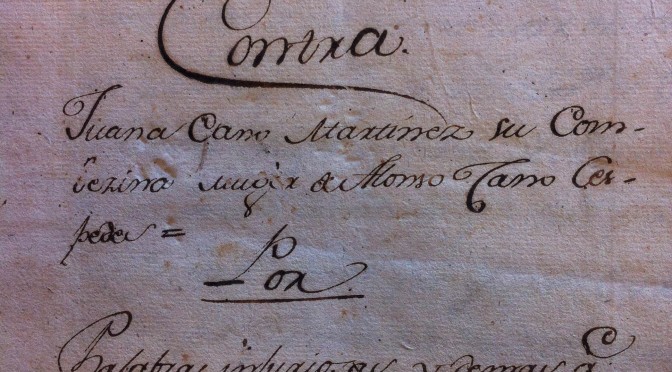 Contra.
Juana Cano Martinez su Com-
bezina muger de Alonso Cano Ces-
pedes =
Por.
Palabras injuriosas y demas q.